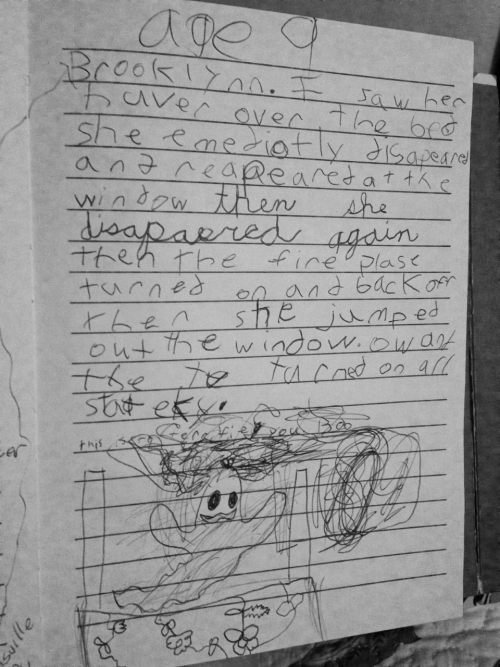 age 9
Brooklynn. I saw her
haver over the bed
she emediatly disapeared
and reapeared at the
window then she
disapaered again
then the fire plase
turned on and back off
then she jumped
out the window. o want
the tv turned on all
stateky.
this
you Boo
ville